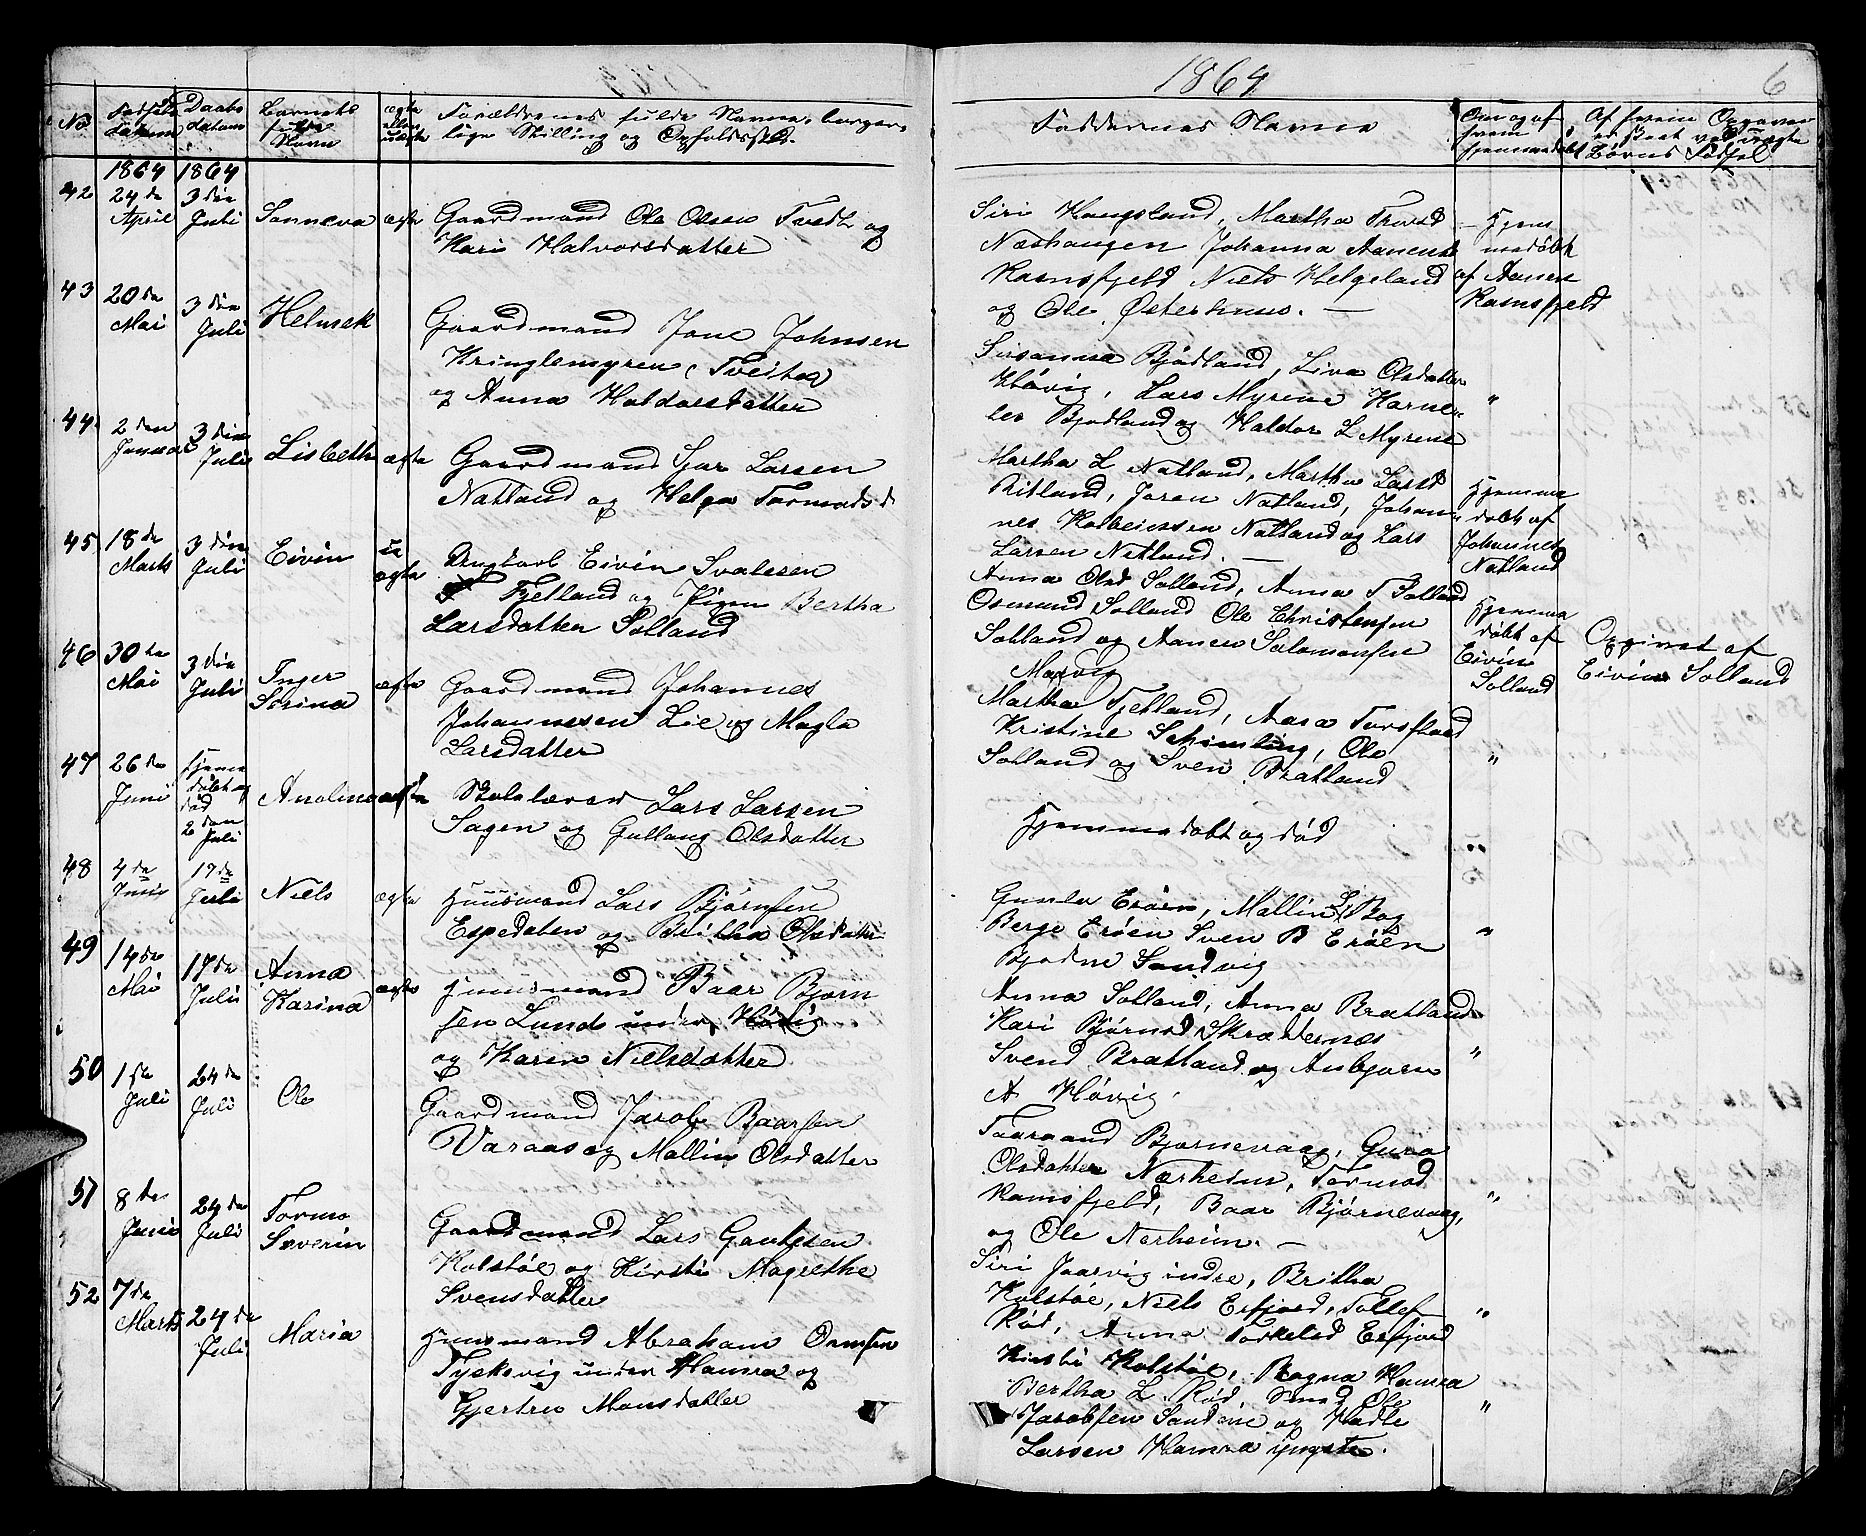 1864
6
No
Fødsels datum
Daabs datum
Barnets fulde Navn
ægte eller uægte
Forældrenes fulde Navne, borgerlige Stilling og Opholdssted.
Faddernes Navne
Om og af hvem hjemmedøbt
Af hvem Opgaven er Beet ved uægte Børns Fødsel
1864 1864
42
24de April
3die Juli
Sanneva
ægte
Gaardmand Ole Olsen Tvedt og
Kari Halvorsdatter
Siri Haugsland, Martha Thorsd
Næshaugen Johanna Aanensd
Ramsfjeld Niels Helgeland
og Ole Østerhuus. —
Hjemmedøbt
af Aanen
Ramsfjeld
43
20de Mai
3die Juli
Helmek
Gaardmand Jone Johnsen
Kringlemyren, Tveitea
og Anna Haldorsdatter
Susanna Bjødland, Liva Olsdatter
Høivig, Lars Myrene Korne-
ler Bjodland og Haldor L Myrene
"
44
2den Januar
3die Juli
Lisbeth
ægte
Gaardmand Sjur Larsen
Natland og Helga Tormodsd
Martha L Natland, Martha Larsd
Ritland, Joren Natland, Johan-
nes Kolbeinssen Natland og Lars
Larsen Natland. —
Hjemme
døbt af
Johannes
Natland
45
18de Marts
3die Juli
Eivin
uægte
Ungkarl Eivin Svalesen
Fjetland og Pigen Bertha
Larsdatter Solland
Anna Olsd Solland, Anna T Solland
Osmund Solland Ole Christensen
Solland og Aanen Salamonsen
Marvig
Hjemme
døbt af
Eivin
Solland
Opgivet af
Eivin Solland
46
30te Mai
3die Juli
Inger
Serina
ægte
Gaardmand Johannes
Johannesen Lie og Magla
Larsdatter
Martha Fjetland, Aasa Torsflaad
Kristine Schimling, Ole
Solland og Sven Bratland
"
47
26de Juni
Hjemme
døbt og
død
2den Juli
Analina
ægte
Skolelærer Lars Larsen
Sagen og Gullaug Olsdatter
Hjemmedøbt og død
48
4de Juni
17de Juli
Niels
ægte
Huusmand Lars Bjørnsen
Espedalen og Britha Olsdatter
Gunla Erøen, Mallin L Bog
Berge Erøen Sven B Erøen
Bjødne Sandvig
"
49
14de Mai
17de Juli
Anna
Karina
ægte
Huusmand Baar Bjørn
sen Lunde under Høivig
og Karen Nielsdatter
Anna Solland, Anna Bratland
Kari Bjørnsd Skrædernæs
Svend Bratland og Anbjørn
A Høvig.
"
50
1ste Juli
24de Juli
Ole
Gaardmand Jacob Baarsen
Varaas og Mallin Olsdatter
Taaraand Bjørnevaag, Guro
Olsdatter Nærheim, Tormod
Ramsfjeld, Baar Bjørnevaag,
og Ole Nerheim. —
"
51
8de Juni
24de Juli
Tormo
Severin
Gaardmand Lars Gautesen
Kolstøe og Kirsti Magrethe
Svensdatter
Siri Jaarvig indre, Britha
Kolstøe, Niels Erfjord, Tollef
Rød, Anna Torkelsd Erfjord
"
52
7de Marts
24de Juli
Maria
Huusmand Abraham Osmsen
Tysksvig under Hamra og
Gjertru Monsdatter
Kirsti Kolstøe, Ragna Hamra
Bertha L Rød, Smed Ole
Jacobsen Sandvig og Hadle
Larsen Hamra yngste.
"